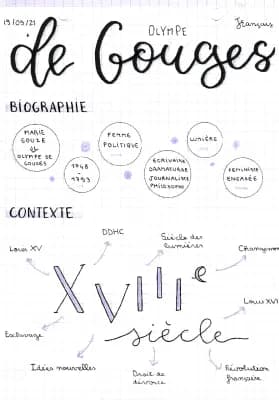 19/09/21
Français
OLYMPE
de Gouges
BIOGRAPHIE
MARIE
GOUZE
et
OLYMPE DE
GOUGES
1748
-
1793
FEMME
POLITIQUE
ECRIVAINE
DRAMATURGE
JOURNALISTE
PHILOSOPHE
LUMIÈRE
FEMINISTE
ENGAGÉE
CONTEXTE
Louis XV
DDHC
Siècle des
lumières
XVIIIe
siècle
Louis XVI
Esclavage
Idées nouvelles
Droit de
divorce
Révolution
française